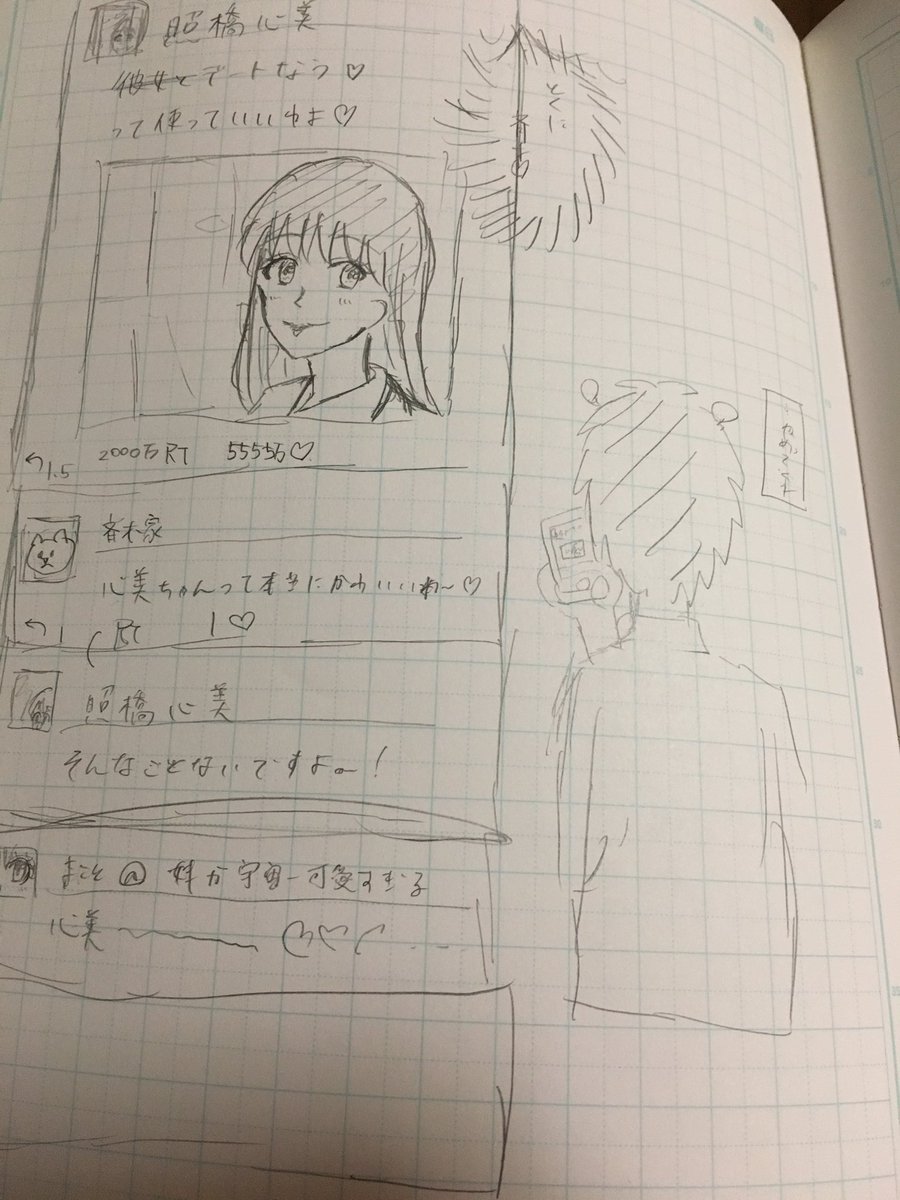 照橋心美
彼女とデートなう♡
って使っていいわよ♡
とくに
斉木♡
↰1.5 2000万RT 5555万♡
斉木家
心美ちゃんって本当にかわいいわ~♡
↰1 RT 1♡
照橋心美
そんなことないですよ~!
まこと@妹が宇宙一可愛すぎる
心美